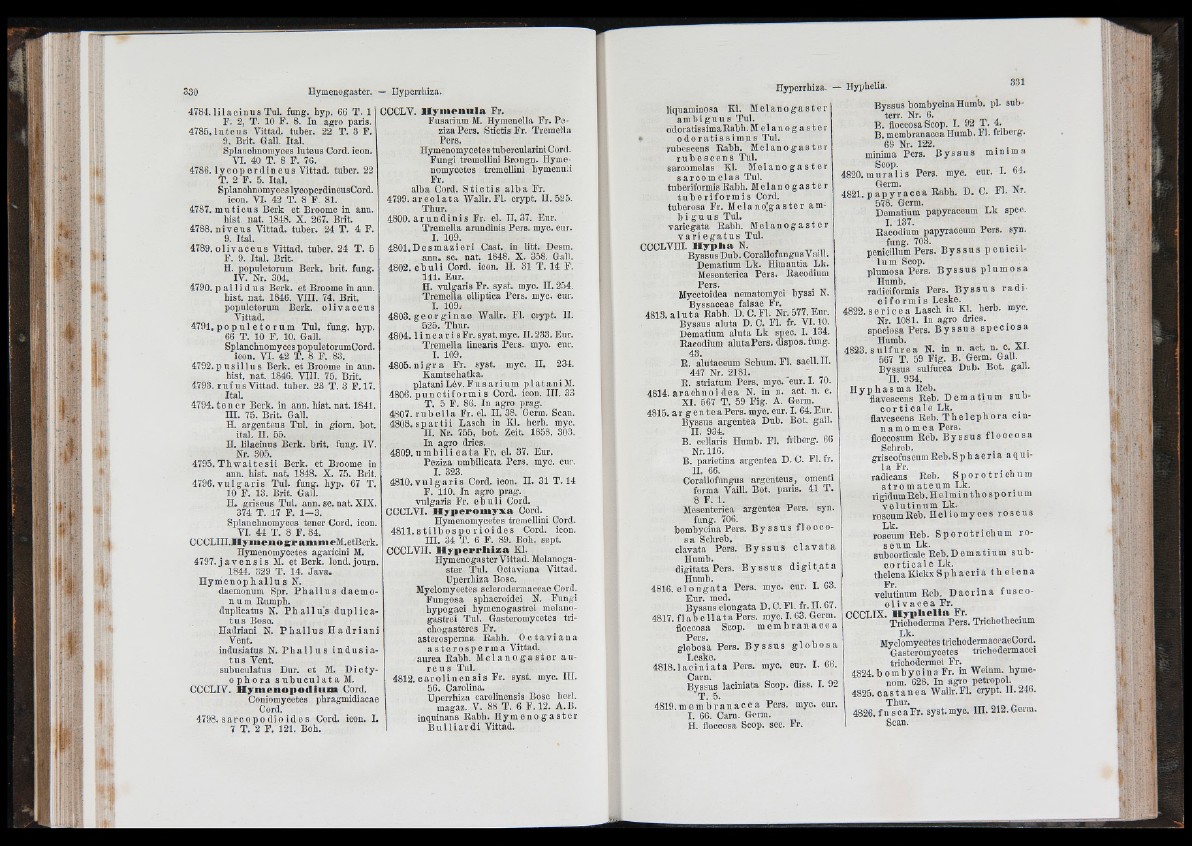 330
Hymenogaster. — Hyperrhiza.
4784. lilacinus Tul. fung. hyp. 66 T. 1
F. 2, T. 10 F. 8. In agro paris.
4785. luteus Vittad. tuber. 22 T. 3 F.
9. Brit. Gall. Ital.
Splanchnomyces luteus Cord. icon.
VI. 40 T. 8 F. 76.
4786. lycoperdineus Vittad. tuber. 22
T. 2 F. 5. Ital.
Splanchnomyces lycoperdineus Cord.
icon. VI. 42 T. 8 F. 81.
4787. muticus Berk. et Broome in ann.
hist. nat. 1848. X. 267. Brit.
4788. niveus Vittad. tuber. 24 T. 4 F.
9. Ital.
4789. olivaceus Vittad. tuber. 24 T. 5
F. 9. Ital. Brit.
H. populetorum Berk. brit. fung.
IV. Nr. 304.
4790. pallidus Berk. et Broome in ann.
hist. nat. 1846. VIII. 74. Brit.
populetorum Berk. olivaceus
Vittad.
4791. populetorum Tul. fung. hyp.
66 T. 10 F. 10. Gall.
Splanchnomyces populetorum Cord.
icon. VI. 42 T. 8 F. 83.
4792. pusillus Berk. et Broome in ann.
hist. nat. 1846. VIII. 75. Brit.
4793. rufus Vittad. tuber. 23 T. 3 F. 17.
Ital.
4794. tener Berk. in ann. hist. nat. 1841.
III. 75. Brit. Gall.
H. argenteus Tul. in giorn. bot.
ital. II. 55.
H. lilacinus Berk. brit. fung. IV.
Nr. 305.
4795. Thwaitesii Berk. et Broome in
ann. hist. nat. 1848. X. 75. Brit.
4796. vulgaris Tul. fung. hyp. 67 T.
10 F. 13. Brit. Gall.
H. griseus Tul. ann. sc. nat. XIX.
374 T. 17 F. 1—3.
Splanchnomyces tener Cord. icon.
VI. 44 T. 8 F. 84.
CCCLIII. Hymenogramme M. et Berk.
Hymenomycetes agaricini M.
4797. javensis M. et Berk. lond. journ.
1844. 329 T. 14. Java.
Hymenophallus N.
daemonum Spr. Phallus daemo-
num Rumph.
duplicatus N. Phallus duplica-
tus Bosc.
Hadriani N. Phallus Hadriani
Vent.
indusiatus N. Phallus indusia-
tus Vent.
subuculatus Dur. et M. Dicty-
ophora subuculata M.
CCCLIV. Hymenopodium Cord.
Coniomycetes phragmidiacae
Cord.
4798. sarcopodioides Cord. icon. I.
7 T. 2 F. 121. Boh.
CCCLV. Hymenula Fr.
Fusarium M. Hymenella Fr. Pe-
ziza Pers. Stictis Fr. Tremella
Pers.
Hymenomycetes tubercularini Cord.
Fungi tremellini Brongn. Hyme-
nomycetes tremellini hymenuli
Fr.
alba Cord. Stictis alba Fr.
4799. areolata Wallr. Fl. crypt. II. 525.
Thur.
4800. arundinis Fr. el. II, 37. Eur.
Tremella arundinis Pers. myc. eur.
I. 109.
4801. Desmazieri Cast. in litt. Desm.
ann. sc. nat. 1848. X. 358. Gall.
4802. ebuli Cord. icon. II. 31 T. 14 F.
111. Eur.
H. vulgaris Fr. syst. myc. II. 254.
Tremella elliptica Pers. myc. eur.
I. 109.
4803. georginae Wallr. Fl. crypt. II.
525. Thur.
4804. linearis Fr. syst. myc. II. 233. Eur.
Tremella linearis Pers. myc. eur.
I. 109.
4805. nigra Fr. syst. myc. II. 234.
Kamtschatka.
platani Lév. Fusarium platani M.
4806. punctiformis Cord. icon. III. 33
T. 5 F. 86. In agro prag.
4807. rubella Fr. el. II, 38. Germ. Scan.
4808. spartii Lasch in Kl. herb. myc.
II. Nr. 755, bot. Zeit. 1858. 303.
In agro dries.
4809. umbilicata Fr. el. 37. Eur.
Peziza umbilicata Pers. myc. eur.
I. 323.
4810. vulgaris Cord. icon. II. 31 T. 14
F. 110. In agro prag.
vulgaris Fr. ebuli Cord.
CCCLVI. Hyperomyxa Cord.
Hymenomycetes tremellini Cord.
4811. stilbosporioides Cord. icon.
III. 34 T. 6 F. 89. Boh. sept.
CCCLVII. Hyperrhiza Kl.
Hymenogaster Vittad. Melanoga-
ster Tul. Octaviana Vittad.
Uperrhiza Bosc.
Myelomycetes sclerodermaceae Cord.
Fungosa sphaeroidei N. Fungi
hypogaei hymenogastrei melano-
gastrei Tul. Gasteromycetes tri-
chogasteres Fr.
asterosperma Rabh. Octaviana
asterosperma Vittad.
aurea Rabh. Melanogaster au-
reus Tul.
4812. carolinensis Fr. syst. myc. III.
56. Carolina.
Uperrhiza carolinensis Bosc berl.
magaz. V. 88 T. 6 F. 12. A.B.
inquinans Rabh. Hymenogaster
Bulliardi Vittad.
Hyperrhiza. — Hyphelia.
331
liquaminosa Kl. Melanogaster
ambiguus Tul.
odoratissima Rabh. Melanogaster
odoratissimus Tul.
rubescens Rabh. Melanogaster
rubescens Tul.
sarcomelas Kl. Melanogaster
sarcomelas Tul.
tuberiformis Rabh. Melanogaster
tuberiformis Cord.
tuberosa Fr. Melanogaster am-
biguus Tul.
variegata Rabh. Melanogaster
variegatus Tul.
CCCLVIII. Hypha N.
Byssus Dub. Corallofungus Vaill.
Dematium Lk. Himantia Lk.
Mesenterica Pers. Racodium
Pers.
Mycetoidea nematomyci byssi N.
Byssaceae falsae Fr.
4813. aluta Rabh. D. C. Fl. Nr. 577. Eur.
Byssus aluta D. C. Fl. fr. VI. 10.
Dematium aluta Lk spec. I. 134.
Racodium aluta Pers. dispos. fung.
43.
R. alutaceum Schum. Fl. saell. II.
447 Nr. 2181.
R. striatum Pers. myc. eur. I. 70.
4814. arachnoidea N. in n. act. n. c.
XI. 567 T. 59 Fig. A. Germ.
4815. argentea Pers. myc. eur. I. 64. Eur.
Byssus argentea Dub. Bot. gall.
II. 934.
B. cellaris Humb. Fl. friberg. 66
Nr. 116.
B. parietina argentea D. C. Fl. fr.
II. 66.
Corallofungus argenteus, omenti
forma Vaill. Bot. paris. 41 T.
8 F. 1.
Mesenterica argentea Pers. syn.
fung. 706.
bombycina Pers. Byssus flocco-
sa Schreb.
clavata Pers. Byssus clavata
Humb.
digitata Pers. Byssus digitata
Humb.
4816. elongata Pers. myc. eur. I. 63.
Eur. med.
Byssus elongata D. C. Fl. fr. II. 67.
4817. flabellata Pers. myc. I. 63. Germ.
floccosa Scop. membranacea
Pers.
globosa Pers. Byssus globosa
Leske.
4818. laciniata Pers. myc. eur. I. 66.
Carn.
Byssus laciniata Scop. diss. I. 92
T. 5.
4819. membranacea Pers. myc. eur.
I. 66. Carn. Germ.
H. floccosa Scop. sec. Fr.
Byssus bombycina Humb. pl. sub-
terr. Nr. 6.
B. floccosa Scop. I. 92 T. 4.
B. membranacea Humb. Fl. friberg.
69 Nr. 122.
minima Pers. Byssus minima
Scop.
4820. muralis Pers. myc. eur. I. 64.
Germ.
4821. papyracea Rabh. D. C. Fl. Nr.
578. Germ.
Dematium papyraceum Lk spec.
I. 137.
Racodium papyraceum Pers. syn.
fung. 703.
penicillum Pers. Byssus penicil-
lum Scop.
plumosa Pers. Byssus plumosa
Humb.
radiciformis Pers. Byssus radi-
ciformis Leske.
4822. sericea Lasch in Kl. herb. myc.
Nr. 1081. In agro dries.
speciosa Pers. Byssus speciosa
Humb.
4823. sulfurea N. in n. act. n. c. XI.
567 T. 59 Fig. B. Germ. Gall.
Byssus sulfurea Dub. Bot. gall.
II. 934.
Hyphasma Reb.
flavescens Reb. Dematium sub-
corticale Lk.
flavescens Reb. Thelephora cin-
namomea Pers.
floccosum Reb. Byssus floccosa
Schreb.
griseofuscum Reb. Sphaeria aqui-
la Fr.
radicans Reb. Sporotrichum
stromateum Lk.
rigidum Reb. Helminthosporium
velutinum Lk.
roseum Reb. Heliomyces roseus
Lk.
roseum Reb. Sporotrichum ro-
seum Lk.
subcorticale Reb. Dematium sub-
corticale Lk.
thelena Kickx Sphaeria thelena
Fr.
velutinum Reb. Dacrina fusco-
olivacea Fr.
CCCLIX. Hyphelia Fr.
Trichoderma Pers. Trichothecium
Lk.
Myelomycetes trichodermaceae Cord.
Gasteromycetes trichodermacei
trichodermei Fr.
4824. bombycina Fr. in Weinm. hyme-
nom. 628. In agro petropol.
4825. castanea Wallr. Fl. crypt. II. 246.
Thur.
4826. fusca Fr. syst. myc. III. 212. Germ.
Scan.